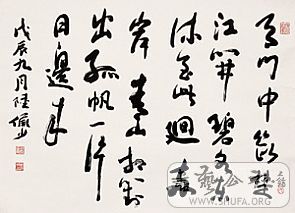 天門中斷楚
江開碧水東
流至此迴兩
岸青山相對
出孤帆一片
日邊來
戊辰九月陸儼少
WWW.SHUFA.ORG